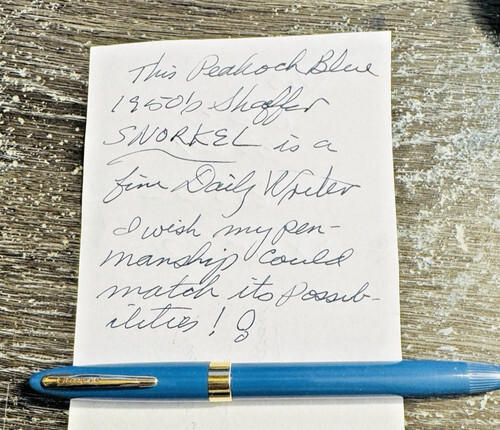 This Peakock Blue
1950's Shaffer
SNORKEL is a
fine Daily Writer
I wish my pen-
manship could
match its possib-
ilities!